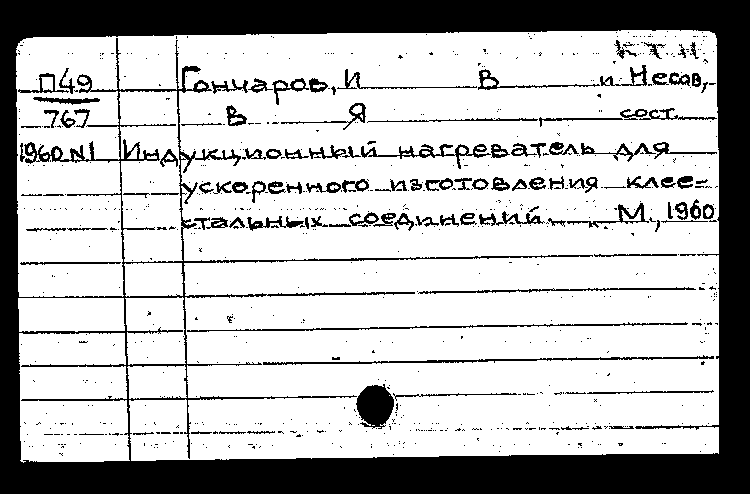 К Т Н
П49 Гончаров, И В и Несов,
767 В Я , сост.
1960 N1 Индукционный нагреватель для
ускоренного изготовления клее-
стальных соединений. М., 1960